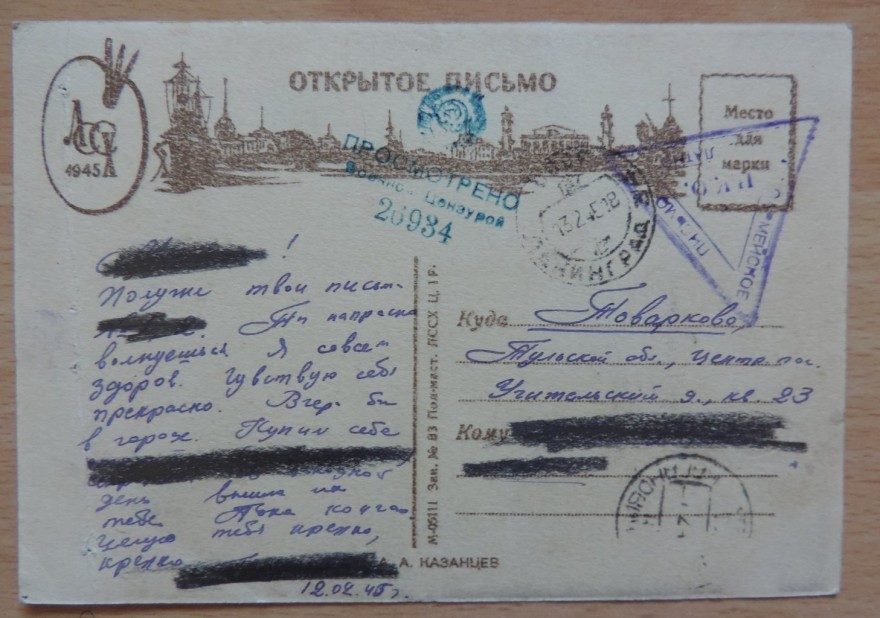 ОТКРЫТОЕ ПИСЬМО
1945
ПРОСМОТРЕНО
Военной Цензурой
26934
ЛЕНИНГРАД
Место
для
марки
!
Получил твои письм-
Ты напрасно
волнуешься Я совсем
здоров. Чувствую себя
прекрасно. Вчера был
в городе. Купил себе
день вышлю
тебе. Пока кончаю
Целую тебя крепко,
крепко
12.02.45г.
М-05111 Зак. № 83 Пол-маст. ЛССХ Ц. 1 Р.
Куда Товарково,
Тульской обл., центр. пос.
Учительский д., кв. 23
Кому
А. КАЗАНЦЕВ